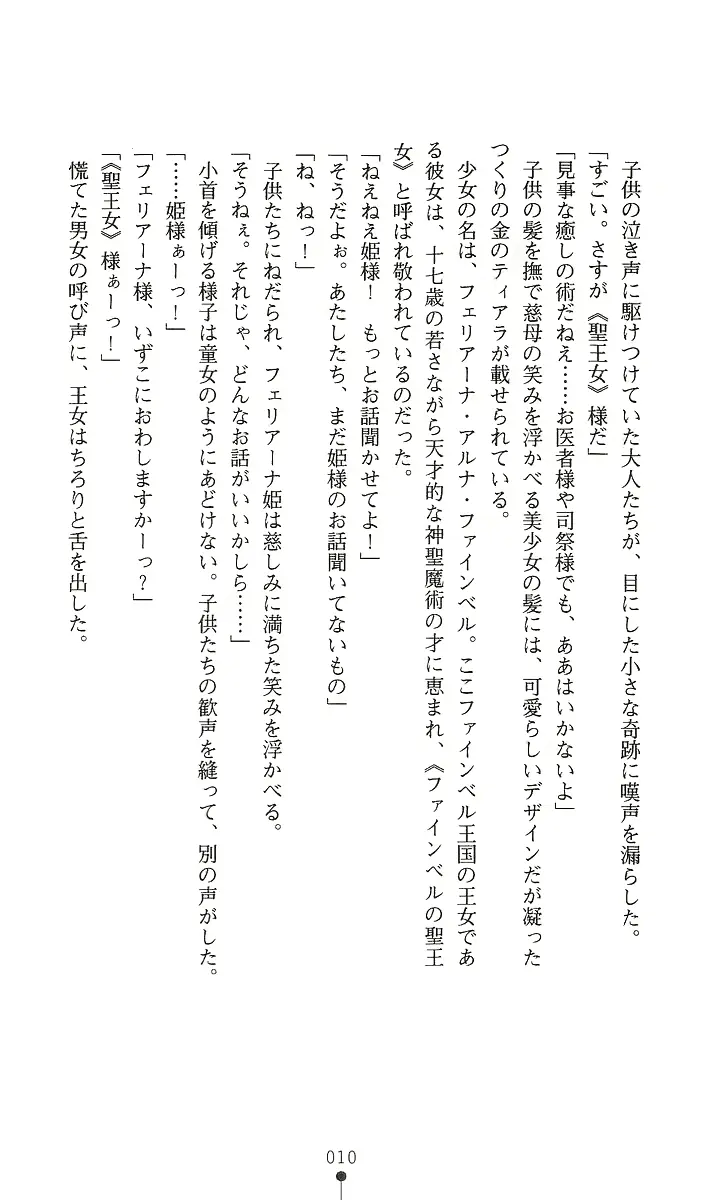 子供の泣き声に駆けつけていた大人たちが、目にした小さな奇跡に嘆声を漏らした。
「すごい。さすが《聖王女》様だ」
「見事な癒しの術だねえ……お医者様や司祭様でも、ああはいかないよ」
子供の髪を撫で慈母の笑みを浮かべる美少女の髪には、可愛らしいデザインだが凝った
つくりの金のティアラが載せられている。
少女の名は、フェリアーナ・アルナ・ファインベル。ここファインベル王国の王女であ
る彼女は、十七歳の若さながら天才的な神聖魔術の才に恵まれ、《ファインベルの聖王
女》と呼ばれ敬われているのだった。
「ねえねえ姫様！　もっとお話聞かせてよ！」
「そうだよぉ。あたしたち、まだ姫様のお話聞いてないもの」
「ね、ねっ！」
子供たちにねだられ、フェリアーナ姫は慈しみに満ちた笑みを浮かべる。
「そうねぇ。それじゃ、どんなお話がいいかしら……」
小首を傾げる様子は童女のようにあどけない。子供たちの歓声を縫って、別の声がした。
「……姫様ぁーっ！」
「フェリアーナ様、いずこにおわしますかーっ？」
「《聖王女》様ぁーっ！」
慌てた男女の呼び声に、王女はちろりと舌を出した。
010